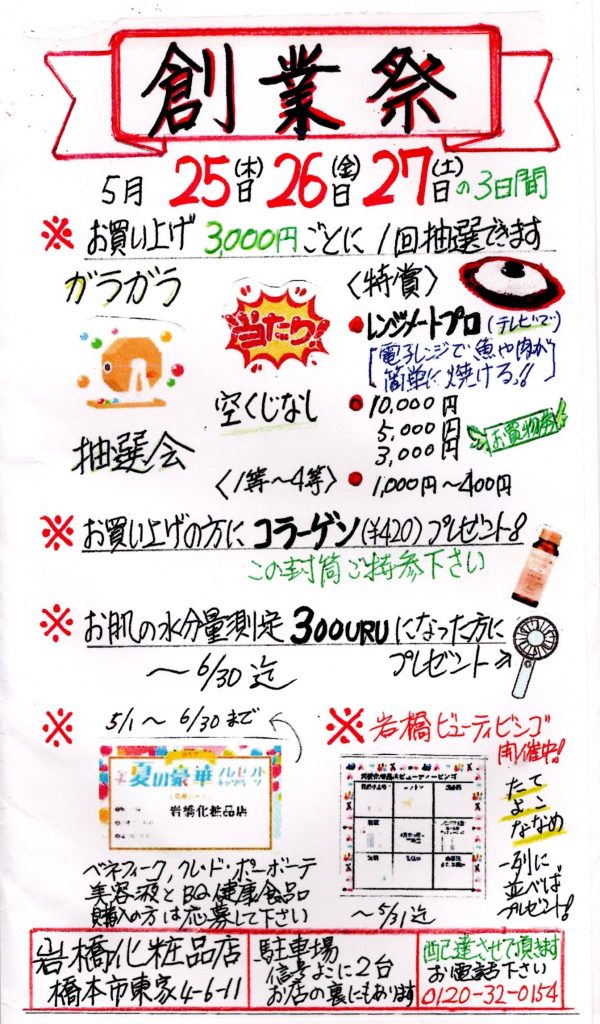 創業祭
5月 25日(木) 26日(金) 27日(土)の3日間
※ お買い上げ 3,000円ごとに 1回抽選できます
ガラガラ
抽選会
当たり!
空くじなし
〈1等～4等〉
〈特賞〉
●レンジメートプロ(テレビで)
[電子レンジで魚や肉が
簡単に焼ける!!]
●10,000円
5,000円
3,000円
お買物券
●1,000円～400円
※ お買い上げの方に コラーゲン(¥420)プレゼント!
この封筒ご持参下さい
※ お肌の水分量測定 300URUになった方に
～6/30迄
プレゼント→
※ 5/1～6/30まで
夏の豪華プレゼントキャンペーン
岩橋化粧品店
ベネフィーク,クレ・ド・ポーボーテ
美容液とBQ健康食品
購入の方は応募して下さい
※ 岩橋ビューティビンゴ
開催中!
岩橋化粧品店ビューティービンゴ
たて
よこ
ななめ
一列に
並べば
プレゼント!
～5/31迄
岩橋化粧品店
橋本市東家4-6-11
駐車場
信号よこに2台
お店の裏にもあります
配達させて頂きます
お電話下さい
0120-32-0154